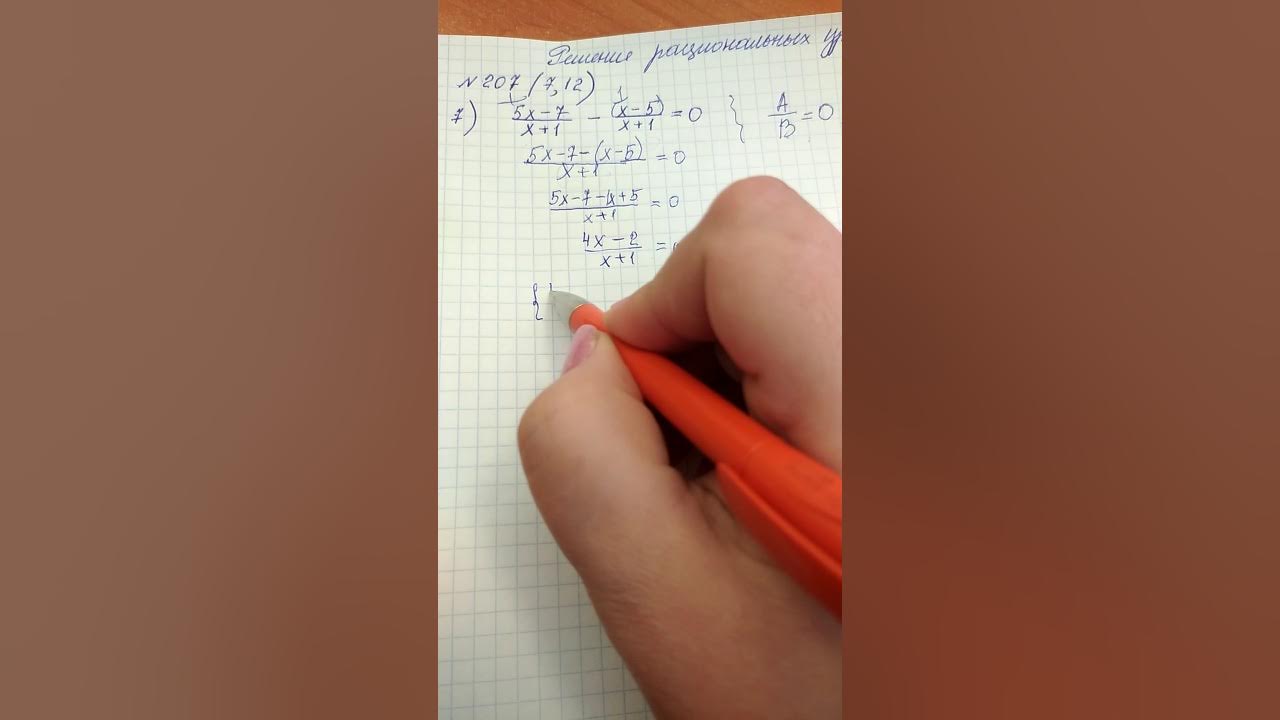 Решение рациональных ур
№207 (7,12)
7) (5x-7)/(x+1) - (x-5)/(x+1) = 0 } A/B = 0
(5x-7-(x-5))/(x+1) = 0
(5x-7-1x+5)/(x+1) = 0
(4x-2)/(x+1) =
{